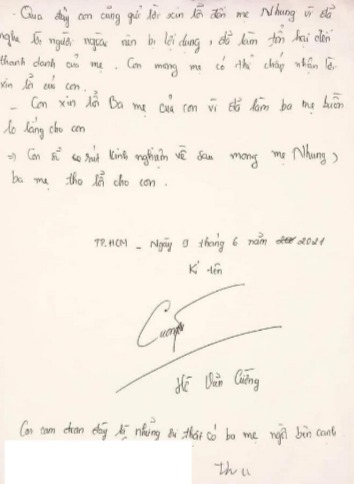 - Qua đây con cũng gửi lời xin lỗi đến mẹ Nhung vì đã
nghe lời người ngoài nên bị lợi dụng, đã làm tổn hại đến
thanh danh của mẹ. Con mong mẹ có thể chấp nhận lời
xin lỗi của con.
- Con xin lỗi Ba mẹ của con vì đã làm ba mẹ buồn
lo lắng cho con
⇒ Con sẽ rút kinh nghiệm về sau mong mẹ Nhung,
ba mẹ tha lỗi cho con.
TP.HCM - Ngày 9 tháng 6 năm 2021
Kí tên
Cường
Hồ Văn Cường
Con cam đoan đây là những sự thật có ba mẹ ngồi bên cạnh